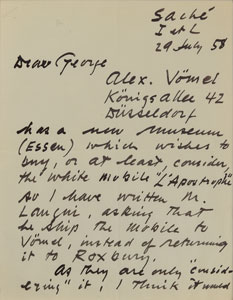 Saché
I et L
29 July 58
Dear George
Alex. Vömel
Königsallee 42
Düsseldorf
has a new museum
(Essen) which wishes to
buy, or at least, consider,
the white mobile "L'Apostrophe"
So I have written Mr.
asking that
he ship the mobile to
Vömel, instead of returning
it to Roxbury.
As they are only "consid-
ering" it, I think it would